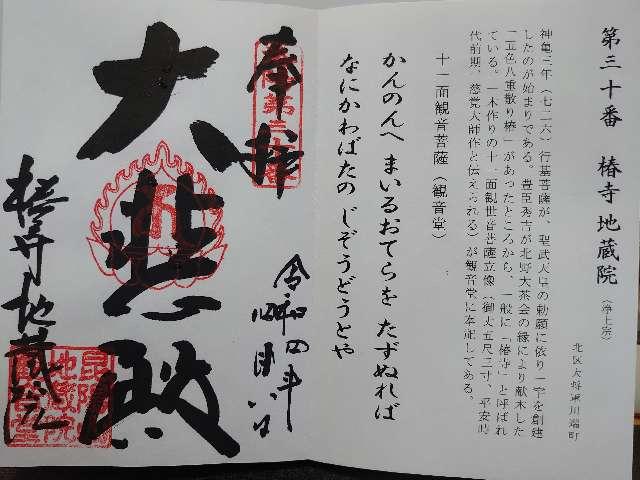 第三十番 椿寺 地蔵院 (浄土宗)
北区大将軍川端町
神亀三年(七二六)行基菩薩が、聖武天皇の勅願に依り一宇を創建
したのが始まりである。豊臣秀吉が北野大茶会の縁により献木した
「五色八重散り椿」があったところから、一般に「椿寺」と呼ばれ
ている。一木作りの十一面観世音菩薩立像(御丈五尺三寸、平安時
代前期、慈覚大師作と伝えられる)が観音堂に本記してある。
十一面観音菩薩(観音堂)
かんのんへ まいるおてらを たずぬれば
なにかわばたの じぞうどうとや
奉拝
令和四年
大悲殿
椿寺地蔵院